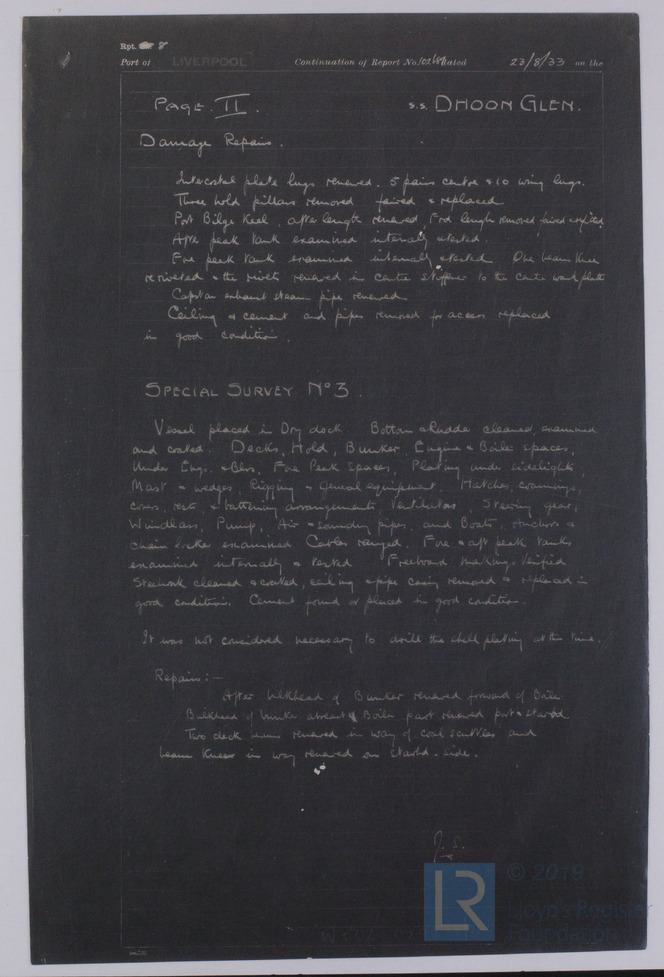 Rpt. 8
Port of LIVERPOOL Continuation of Report No. dated 23/8/33 on the
PAGE II. s.s. DHOON GLEN.
Damage Repairs.
Intercostal plate lugs renewed. 5 pairs centre & 10 wing lugs.
Three hold pillars removed faired & replaced
Port Bilge Keel, after length renewed Ford length removed, faired & refitted
After peak tank examined internally & tested.
Fore peak tank examined internally & tested One beam knee
reriveted & the rivets renewed in centre stiffener to the centre wash plate
Capstan exhaust steam pipe renewed
Ceiling & cement and pipes removed for access replaced
in good condition.
SPECIAL SURVEY No 3.
Vessel placed in Dry dock. Bottom & Rudder cleaned, examined
and coated. Decks, Hold, Bunker, Engine & Boiler spaces,
Under Engs. & Blrs, Fore Peak Spaces, Plating under sidelights,
Mast & wedges, Rigging & General equipment, Hatches, coamings,
covers, rests & battening arrangements, Ventilators, Steering gear,
Windlass, Pump, Air & sounding pipes, and Boats, Anchors &
chain locker examined Cables ranged, Fore & aft peak tanks
examined internally & tested Freeboard markings Verified
Steelwork cleaned & coated, ceiling & pipe casing removed & replaced in
good condition. Cement found or placed in good condition.
It was not considered necessary to drill the shell plating at this time.
Repairs:-
After bulkhead of Bunker renewed forward of Boiler
Bulkhead of bunker abreast of Boiler part renewed port & starbd
Two deck renewed in way of coal scuttles and
beam knees in way renewed on starbd. side.
J. S.
LR
© 2019
Lloyd's Register
Foundation